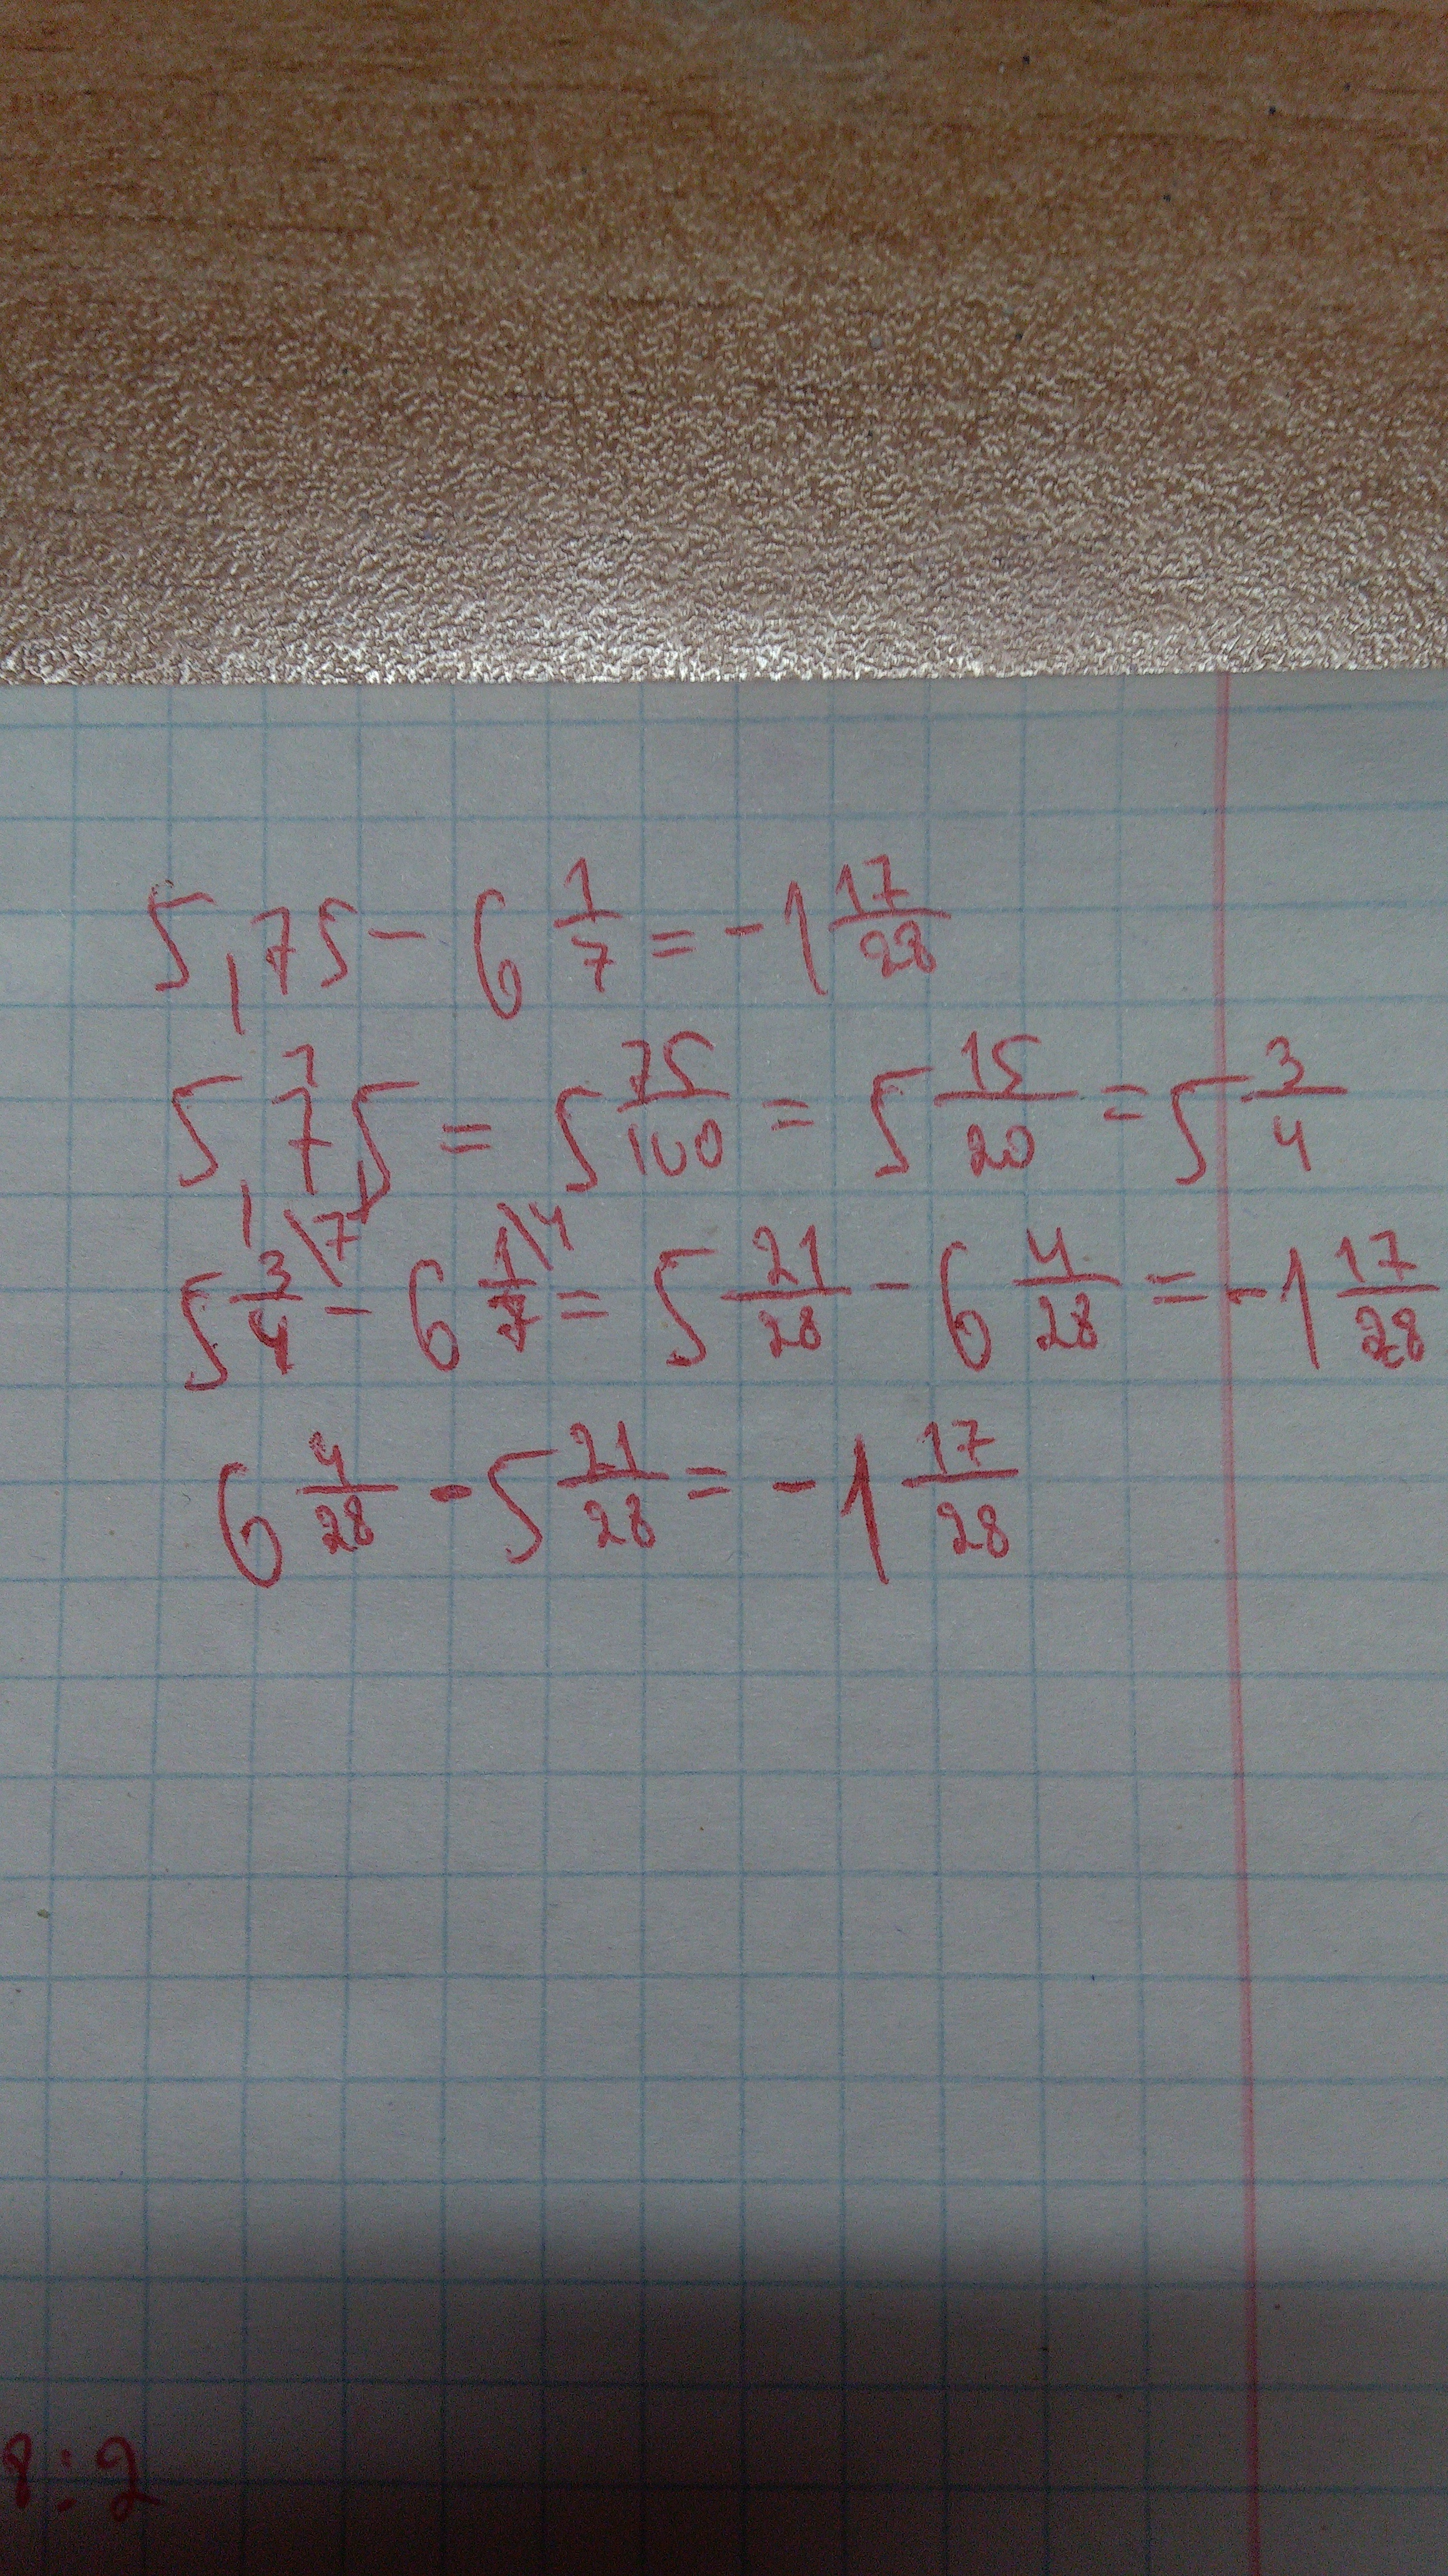 5,75 - 6 1/7 = -1 17/28
5,75 = 5 75/100 = 5 15/20 = 5 3/4
5 3\7/4 - 6 1\4/7 = 5 21/28 - 6 4/28 = -1 17/28
6 4/28 - 5 21/28 = -1 17/28
8:2